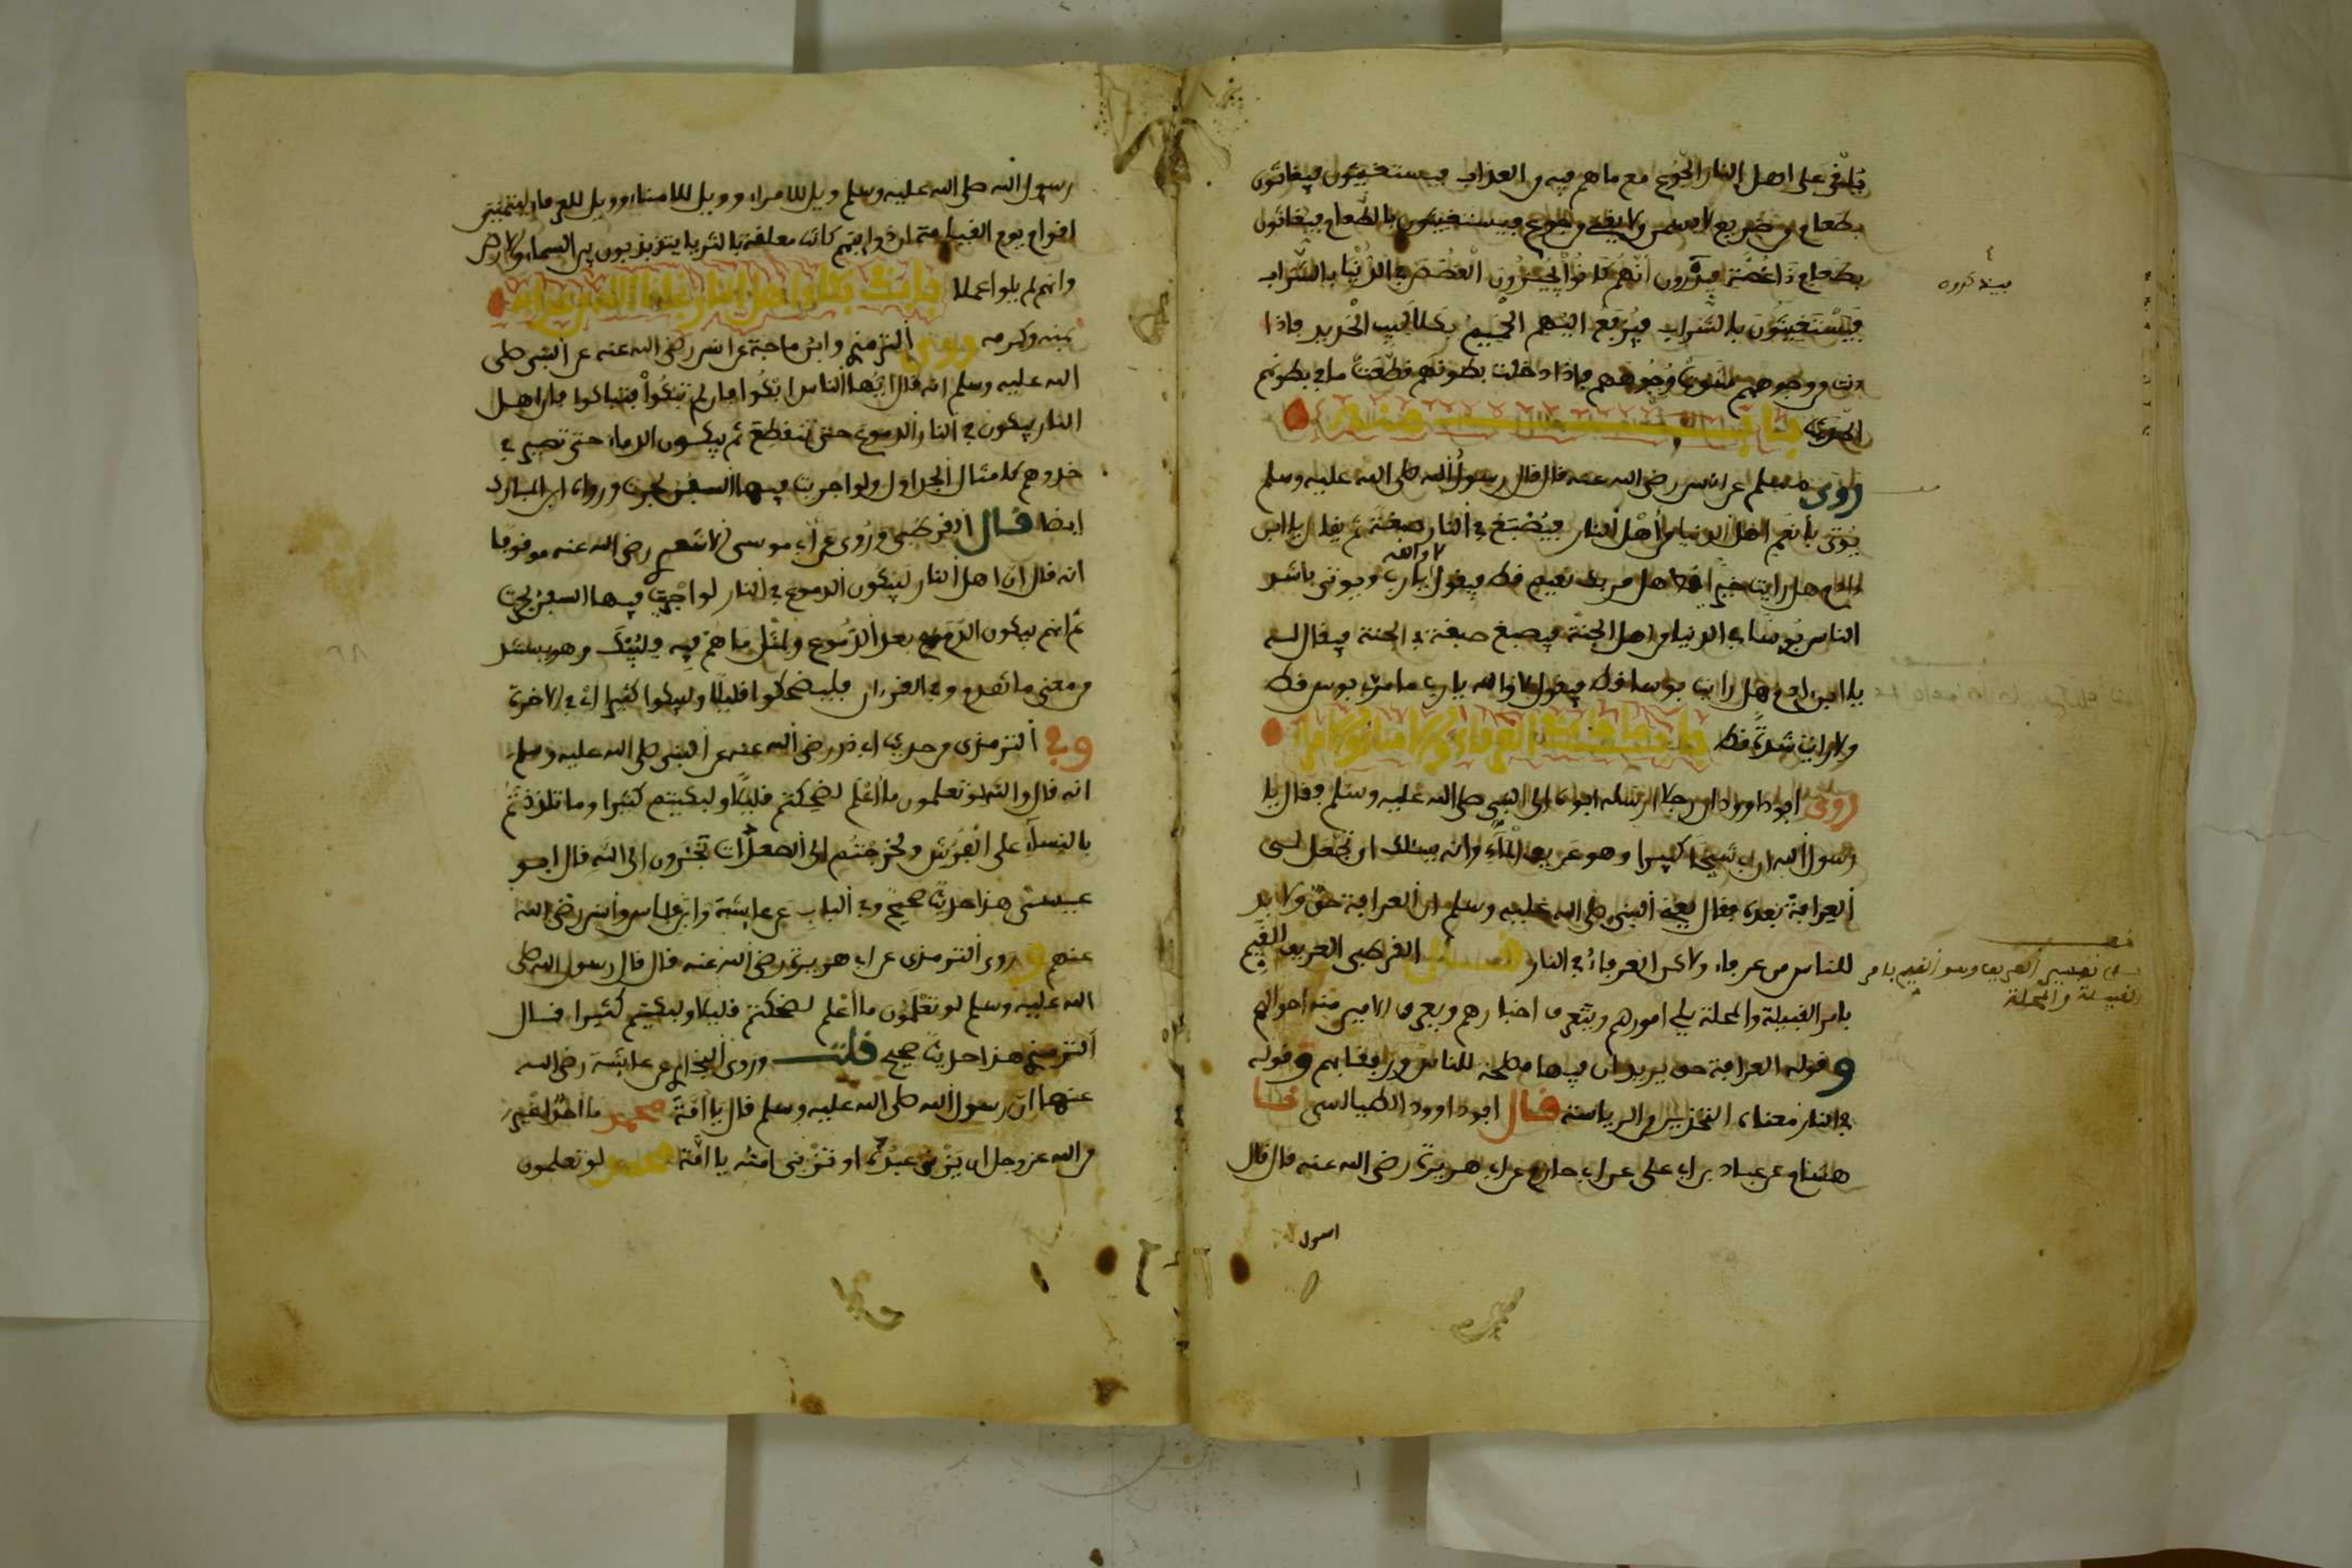 يلقى على اهل النار الجوع مع ما هم فيه من العذاب فيستغيثون فيغاثون
بطعام من ضريع لا يسمن ولا يغني من جوع فيستغيثون بالطعام فيغاثون
بطعام ذا غصة فيذكرون أنهم كانوا يجيزون الغصص في الدنيا بالشراب
فيستغيثون بالشراب فيرفع اليهم الحميم بكلاليب الحديد فاذا
دنت من وجوههم شوت وجوههم فاذا دخلت بطونهم قطعت ما في بطونهم
الحديث باب منه
روى مسلم عن انس رضى الله عنه قال قال رسول الله صلى الله عليه وسلم
يؤتى بأنعم اهل الدنيا من أهل النار فيصبغ في النار صبغة ثم يقال يا ابن
ادم هل رايت خيرا قط هل مر بك نعيم قط فيقول لا والله يارب ويوتى باشد
الناس بؤسا في الدنيا من اهل الجنة فيصبغ صبغة في الجنة فيقال له
يا ابن ادم هل رايت بوسا قط فيقول لا والله يا رب ما مر بي بوس قط
ولا رايت شدة قط باب ما جاء في العرفاء
روى ابو داوود ان رجلا ارسله ابوه الى النبي صلى الله عليه وسلم فقال يا
رسول الله ان ابي شيخا كبيرا وهو عريف الماء وانه يسئلك ان تجعل لي
العرافة بعده فقال النبي صلى الله عليه وسلم ان العرافة حق ولا بد
للناس من عرفاء ولاكن العرفاء في النار قال القرطبي العريف القيم
بامر القبيلة والمحلة يلي امورهم ويتعرف اخبارهم ويعرف الامير منه احوالهم
وقوله العرافة حق يريد ان فيها مصلحة للناس ورفقا بهم وقوله
في النار معناه التحذير من الرياسة قال ابو داوود الطيالسي
هشام عن عباد بن ابي علي عن ابي حازم عن ابي هريرة رضى الله عنه قال قال
رسول
قف
على تفسير العريف وهو القيم بامر
القبيلة والمحلة
رسول الله صلى الله عليه وسلم ويل للامراء وويل للامناء وويل للعرفاء ليتمنين
اقوام يوم القيامة ان ذوايبهم كانت معلقة بالثريا يتذبذبون بين السماء والارض
وانهم لم يلوا عملا
بمنه وكرمه وروى الترمذي وابن ماجة عن انس رضى الله عنه عن النبي صلى
الله عليه وسلم انه قال ايها الناس ابكوا فان لم تبكوا فتباكوا فان اهل
النار يبكون في النار الدموع حتى تنقطع ثم يبكون الدماء حتى تصير في
خدودهم كامثال الجداول ولو اجريت فيها السفن لجرت ورواه ابن المبارك
ايضا قال القرطبي وروى عن ابي موسى الاشعري رضى الله عنه موقوفا
انه قال ان اهل النار ليبكون الدموع في النار لو اجريت فيها السفن لجرت
ثم انهم يبكون الدم بعد الدموع ولمثل ما هم فيه فليبك وهو يستند
من معنى ما تقدم وفي القرءان فليضحكوا قليلا وليبكوا كثيرا اي في الاخرة
وفي الترمذي من حديث ابي ذر رضى الله عنه عن النبي صلى الله عليه وسلم
انه قال والله لو تعلمون ما أعلم لضحكتم قليلا ولبكيتم كثيرا وما تلذذتم
بالنساء على الفرش ولخرجتم إلى الصعدات تجئرون الى الله قال ابو
عيسى هذا حديث صحيح وفي الباب عن عايشة وابن عباس وأنس رضى الله
عنهم وروى الترمذي عن ابي هريرة رضى الله عنه قال قال رسول الله صلى
الله عليه وسلم لو تعلمون ما أعلم لضحكتم قليلا ولبكيتم كثيرا قال
الترمذي هذا حديث صحيح قلت وروى البخاري عن عايشة رضى الله
عنها ان رسول الله صلى الله عليه وسلم قال يا أمة محمد ما احد أغير
من الله عز وجل ان يزني عبده او تزني امته يا أمة محمد لو تعلمون